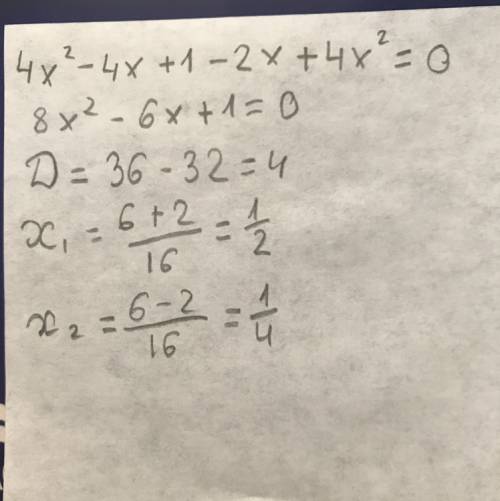 4x² - 4x + 1 - 2x + 4x² = 0
8x² - 6x + 1 = 0
D = 36 - 32 = 4
x₁ = (6 + 2)/16 = 1/2
x₂ = (6 - 2)/16 = 1/4